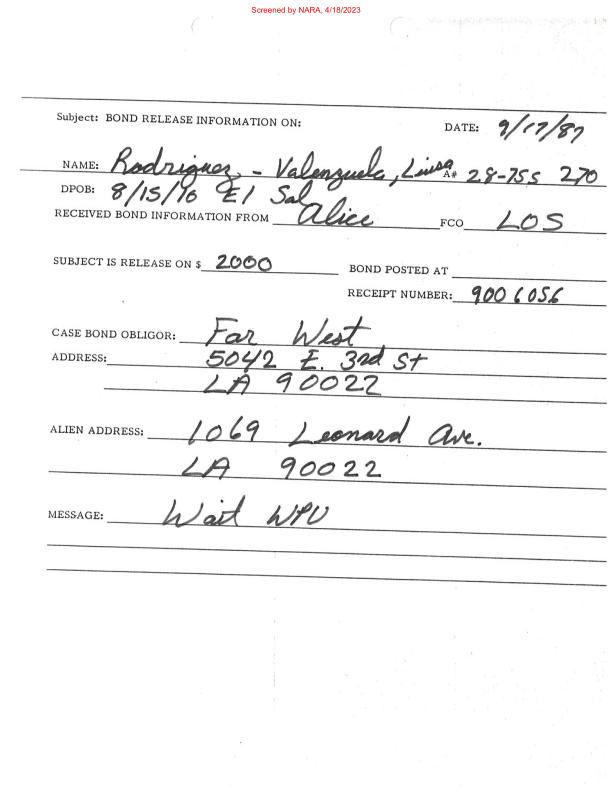 Screened by NARA, 4/18/2023
Subject: BOND RELEASE INFORMATION ON: DATE: 9/17/87
NAME: Rodriguez - Valenzuela, Luisa A# 28-755 270
DPOB: 8/15/70 El Sal
RECEIVED BOND INFORMATION FROM Alice FCO LOS
SUBJECT IS RELEASE ON $ 2000 BOND POSTED AT
RECEIPT NUMBER: 9006056
CASE BOND OBLIGOR: Far West
ADDRESS: 5042 E. 3rd St
LA 90022
ALIEN ADDRESS: 1069 Leonard Ave.
LA 90022
MESSAGE: Wait WPU